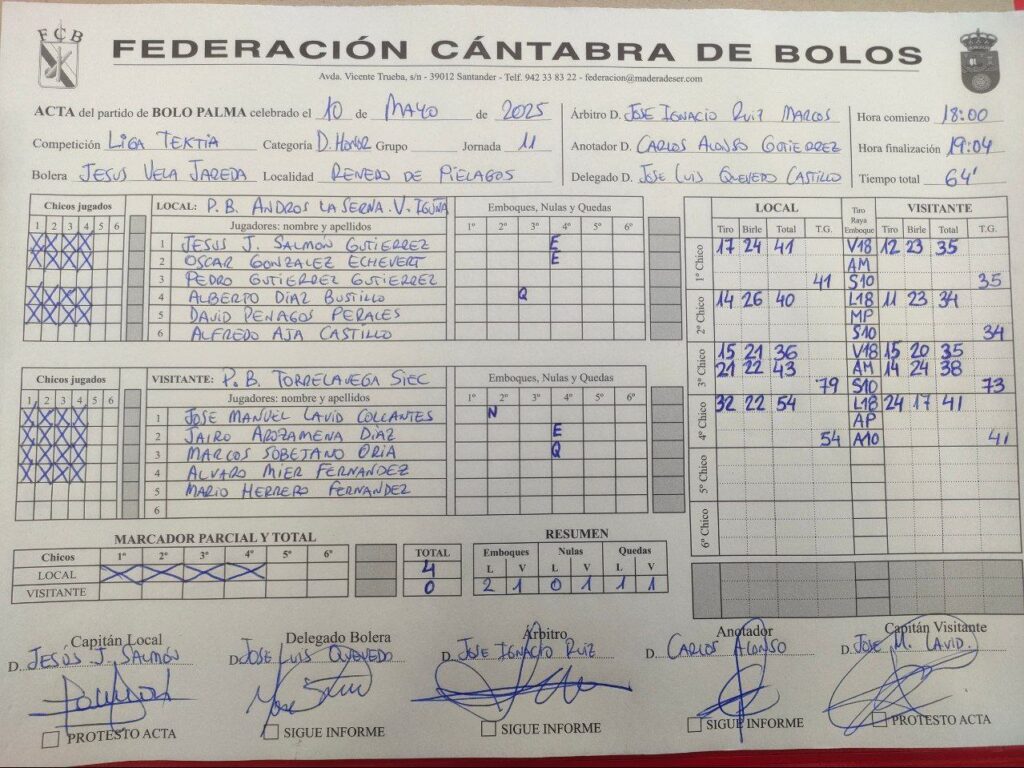 FCB
FEDERACIÓN CÁNTABRA DE BOLOS
Avda. Vicente Trueba, s/n - 39012 Santander - Telf. 942 33 83 22 - federacion@maderadeser.com
ACTA del partido de BOLO PALMA celebrado el 10 de MAYO de 2025
Competición LIGA TEKTIA Categoría D. HONOR Grupo Jornada 11
Bolera JESUS VELA JAREDA Localidad RENEDO DE PIELAGOS
Árbitro D. JOSE IGNACIO RUIZ MARCOS
Anotador D. CARLOS ALONSO GUTIERREZ
Delegado D. JOSE LUIS QUEVEDO CASTILLO
Hora comienzo 18:00
Hora finalización 19:04
Tiempo total 64'
Chicos jugados
1 2 3 4 5 6
LOCAL: P.B. ANDROS LA SERNA. V. IGUÑA
Jugadores: nombre y apellidos
Emboques, Nulas y Quedas
1º 2º 3º 4º 5º 6º
1 JESUS J. SALMON GUTIERREZ E
2 OSCAR GONZALEZ ECHEVERT E
3 PEDRO GUTIERREZ GUTIERREZ
4 ALBERTO DIAZ BUSTILLO Q
5 DAVID PENAGOS PERALES
6 ALFREDO AJA CASTILLO
Chicos jugados
1 2 3 4 5 6
VISITANTE: P.B. TORRELAVEGA SIEC
Jugadores: nombre y apellidos
Emboques, Nulas y Quedas
1º 2º 3º 4º 5º 6º
1 JOSE MANUEL LAVID COLLANTES N
2 JAIRO AROZAMENA DIAZ E
3 MARCOS SOBEJANO ORIA Q
4 ALVARO MIER FERNANDEZ
5 MARIO HERRERO FERNANDEZ
6
LOCAL Tiro Raya Emboque VISITANTE
Tiro Birle Total T.G. Tiro Birle Total T.G.
1º Chico
17 24 41 V18 12 23 35
AM
41 S10 35
2º Chico
14 26 40 L18 11 23 34
MP
S10 34
3º Chico
15 21 36 V18 15 20 35
21 22 43 AM 14 24 38
79 S10 73
4º Chico
32 22 54 L18 24 17 41
AP
54 A10 41
5º Chico
6º Chico
MARCADOR PARCIAL Y TOTAL
Chicos 1º 2º 3º 4º 5º 6º TOTAL
LOCAL X X X X 4
VISITANTE 0
RESUMEN
Emboques Nulas Quedas
L V L V L V
2 1 0 1 1 1
Capitán Local
D. JESÚS J. SALMÓN
PROTESTO ACTA
Delegado Bolera
D. JOSE LUIS QUEVEDO
SIGUE INFORME
Árbitro
D. JOSE IGNACIO RUIZ
SIGUE INFORME
Anotador
D. CARLOS ALONSO
SIGUE INFORME
Capitán Visitante
D. JOSE M. LAVID.
PROTESTO ACTA